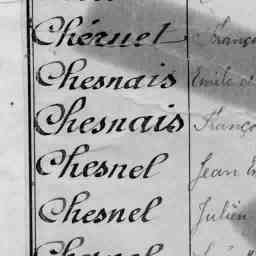 Chéruel Franço
Chesnais Emile
Chesnais Franço
Chesnel Jean
Chesnel Julien
Chesnel